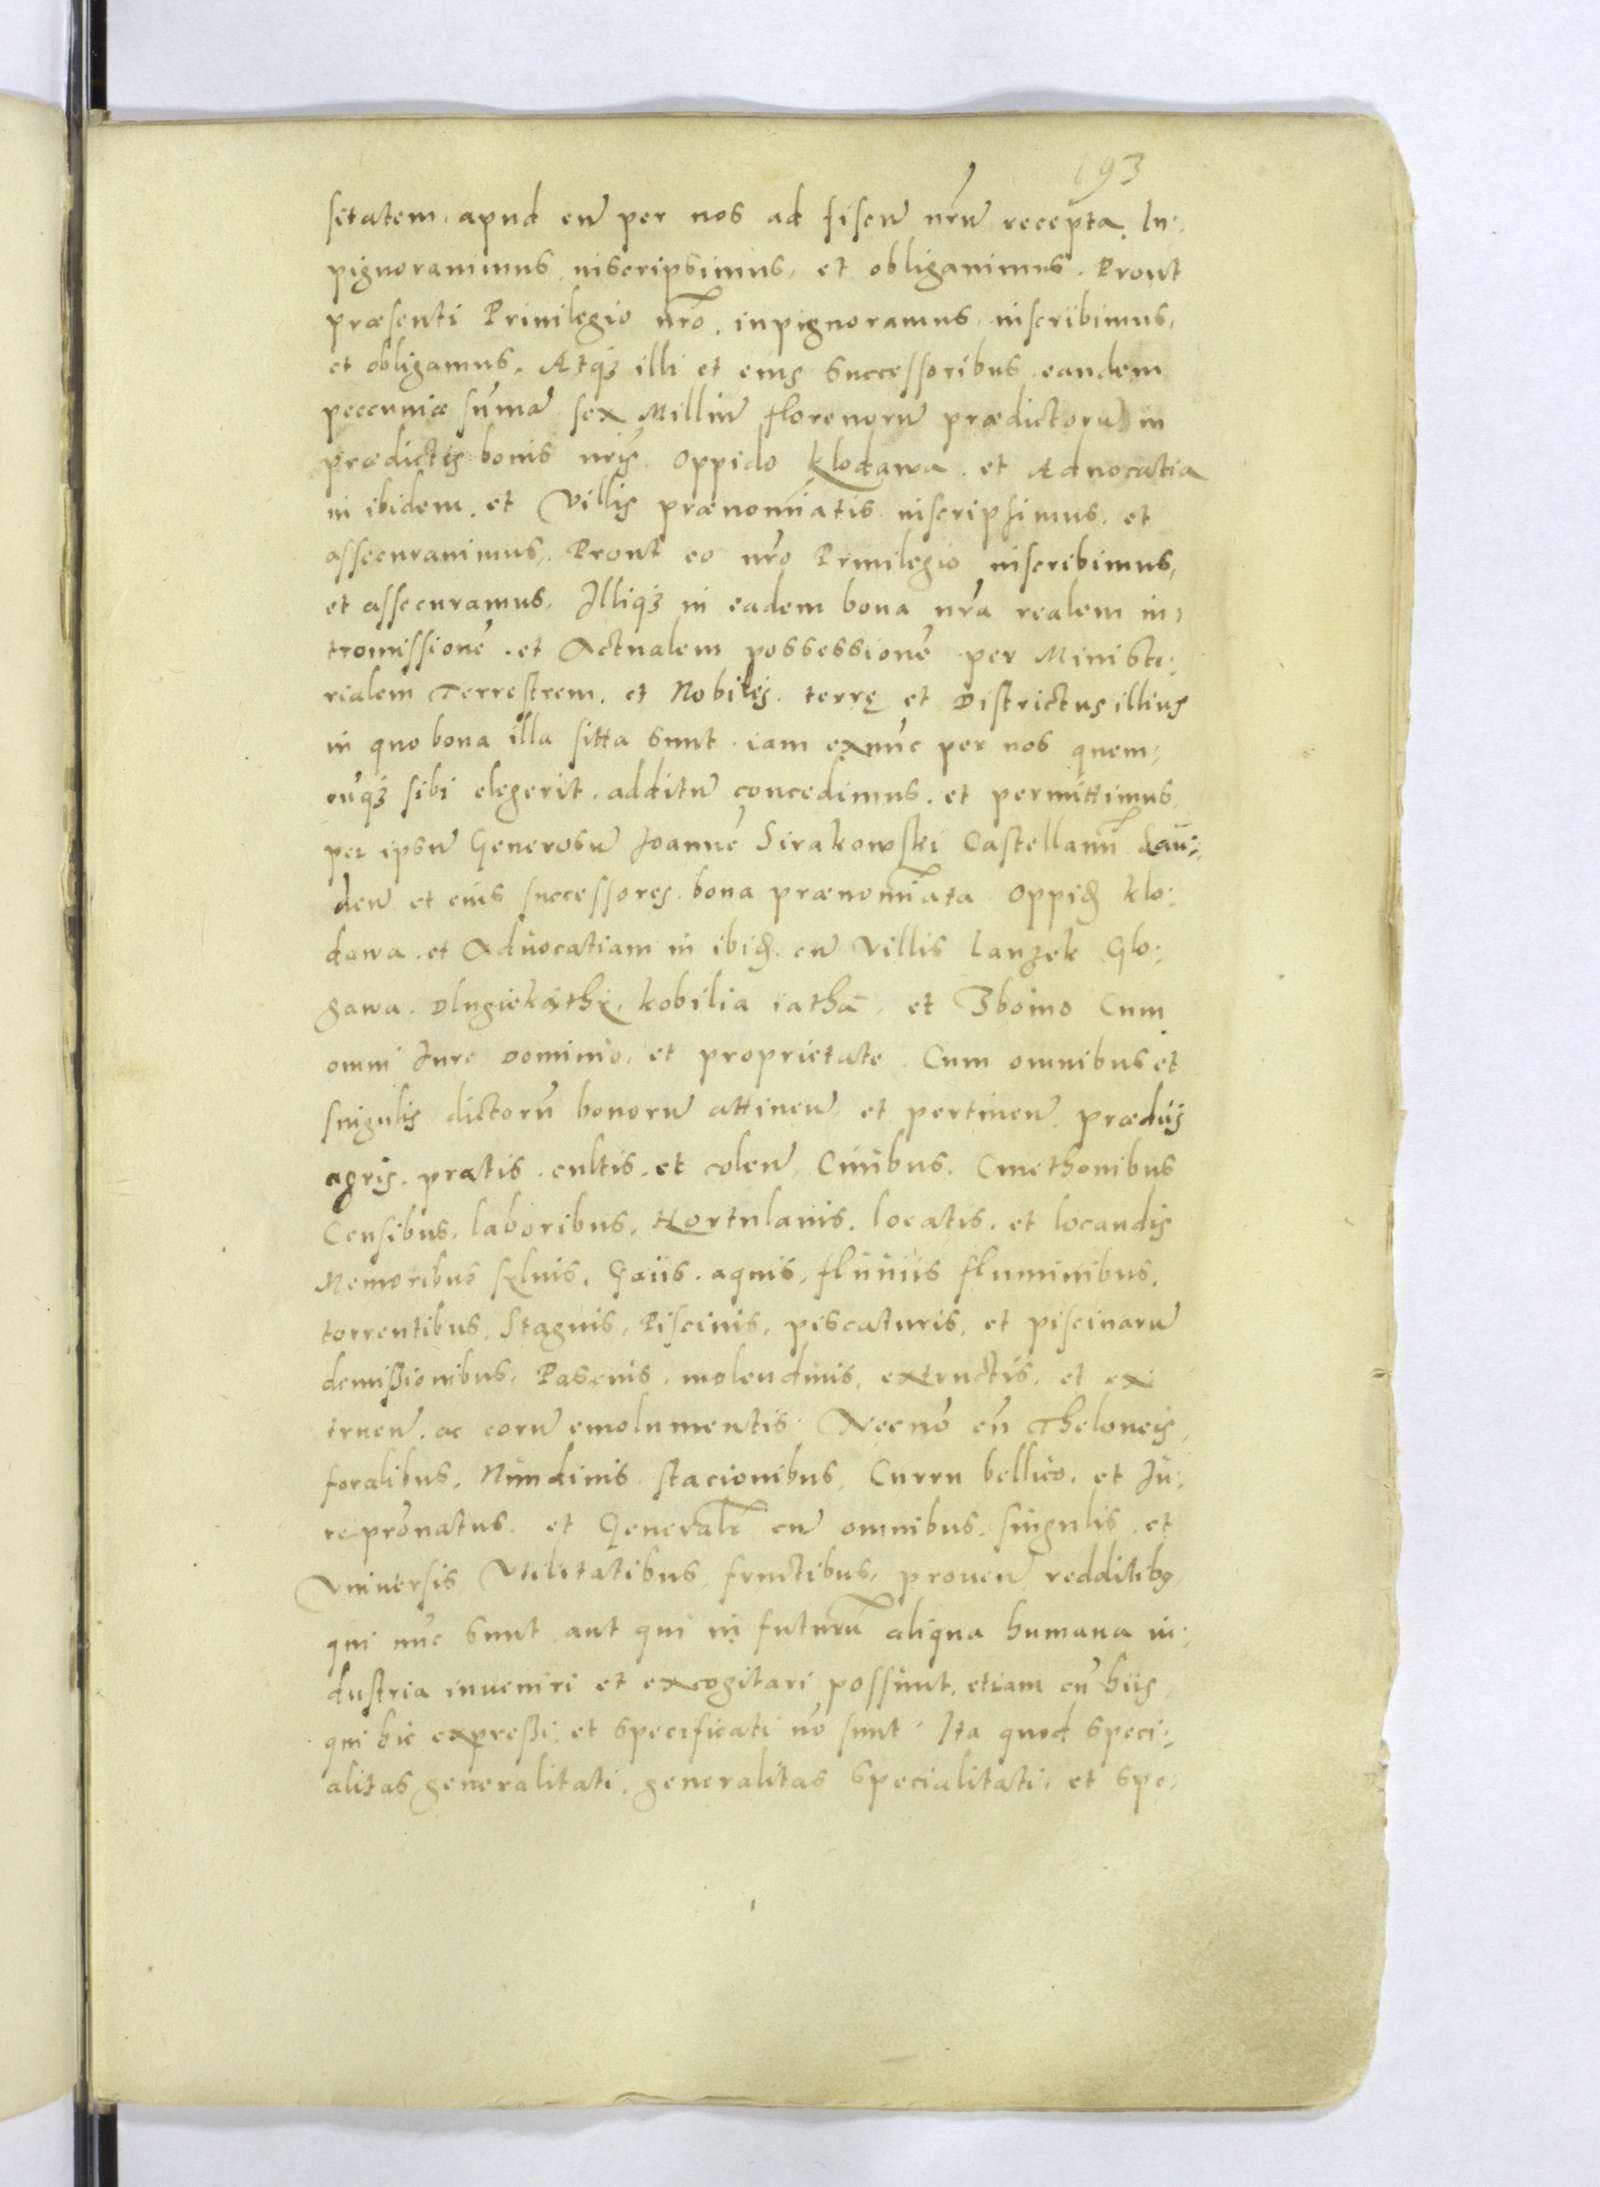 193
sitatem, apud eũ per nos ad fiscũ nr̃ũ recepta. In:
pignorauimus, inscripsimus, et obligauimus. Prout
præsenti Priuilegio nr̃o, inpignoramus, inscribimus,
et obligamus, Atqȝ illi et eius successoribus eandem
peccuniæ sũmã sex Milliũ florenorũ prædictorũ in
prædictis bonis nr̃is. Oppido Klodawa. et Aduocatia
in ibidem. et Villis prænomĩatis inscripsimus. et
assecurauimus, Prout eo nr̃o Priuilegio inscribimus,
et assecuramus, Illiqȝ in eadem bona nr̃a realem in,
tromissionẽ. et Actualem possessionẽ per Ministe:
rialem Terrestrem. et Nobiles. terrę et Districtus illius
in quo bona illa sitta sunt. iam exnũc per nos quem,
cũqȝ sibi elegerit. additũ concedimus. et permittimus
per ipsũ Generosũ Joannẽ Sirakowski Castellanũ Lan:
deñ et eius successores. bona prænomĩata Oppid̃ Klo:
dawa. et Aduocatiam in ibid̃. cũ Villis Lanzek Glo:
gawa. Dlugiekąthÿ. kobilia iathã, et Zboino Cum
omni Jure Dominio, et proprietate. Cum omnibus et
singulis dictorũ bonorũ attineñ, et pertineñ. prædiis
agris. pratis. cultis. et coleñ, Ciuibus. Cmethonibus
Censibus, laboribus, Hortulanis. locatis. et locandis
Nemoribus sÿluis, Gaiis. aquis, fluuiis fluminibus.
torrentibus. Stagnis, Piscinis, piscaturis, et piscinarũ
demißionibus, Pascuis, molendinis, extructis, et ex:
trueñ. ac eorũ emolumentis. Necnõ cũ Theloneis,
foralibus, Nundinis stacionibus, Curru bellico. et Ju:
repr̃onatus. et Generalr̃ cũ omnibus. singulis. et
Vniuersis Vtilitatibus, fructibus, proueñ redditibꝫ
qui nũc sunt aut qui in futurũ aliqua humana in:
dustria inueniri et excogitari possunt, etiam cũ hiis,
qui hic expreßi. et specificati nõ sunt. Ita quod speci:
alitas generalitati, generalitas specialitati, et spe: